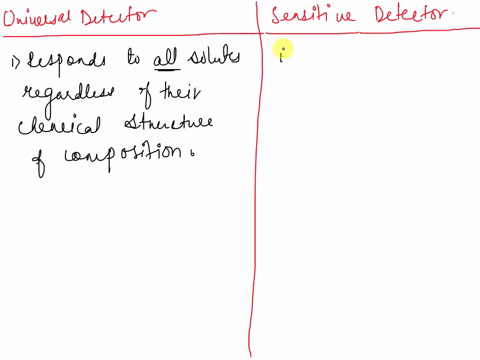 Universal Detector
Sensitive Detector.
1) Responds to all solutes
regardless of their
chemical structure
of composition.
i